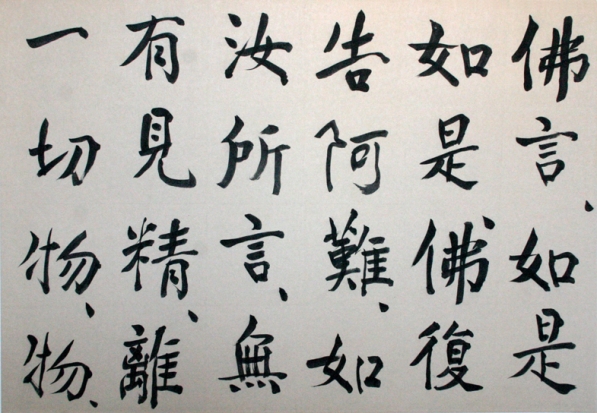 佛言、如是
如是佛復
告阿難、如
汝所言、無
有見精、離
一切物、物、